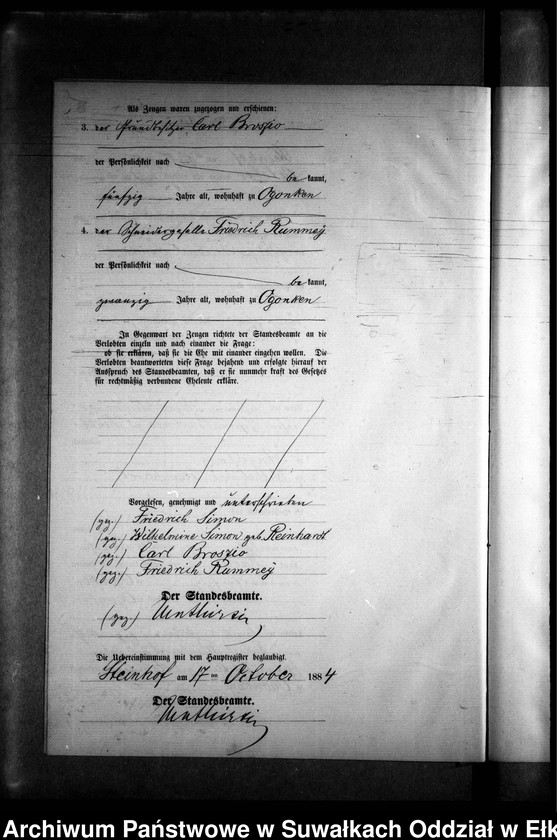 Als Zeugen waren zugezogen und erschienen:
3. der Grundbesitzer Carl Broszio
der Persönlichkeit nach
be kannt,
fünfzig Jahre alt, wohnhaft zu Ogonken
4. der Schneidergeselle Friedrich Rummey
der Persönlichkeit nach
be kannt,
zwanzig Jahre alt, wohnhaft zu Ogonken
In Gegenwart der Zeugen richtete der Standesbeamte an die
Verlobten einzeln und nach einander die Frage:
ob sie erklären, daß sie die Ehe mit einander eingehen wollen. Die
Verlobten beantworteten diese Frage bejahend und erfolgte hierauf der
Ausspruch des Standesbeamten, daß er sie nunmehr kraft des Gesetzes
für rechtmäßig verbundene Eheleute erkläre.
Vorgelesen, genehmigt und unterschrieben
(gez.) Friedrich Simon
(gez.) Wilhelmine Simon geb. Reinhardt
(gez.) Carl Broszio
(gez.) Friedrich Rummey
Der Standesbeamte.
(gez.)
Die Uebereinstimmung mit dem Hauptregister beglaubigt.
Steinhof am 17 ten October 1884
Der Standesbeamte.
Archiwum Państwowe w Suwałkach Oddział w Ełk